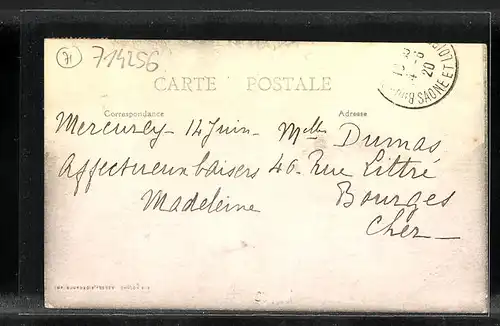 71
714256
CARTE POSTALE
Correspondance
Adresse
SAONE ET LOIRE
20
Mercurey - 14 Juin -
Affectueux baisers
Madeleine
Melle Dumas
40. Rue Littré
Bourges
Cher